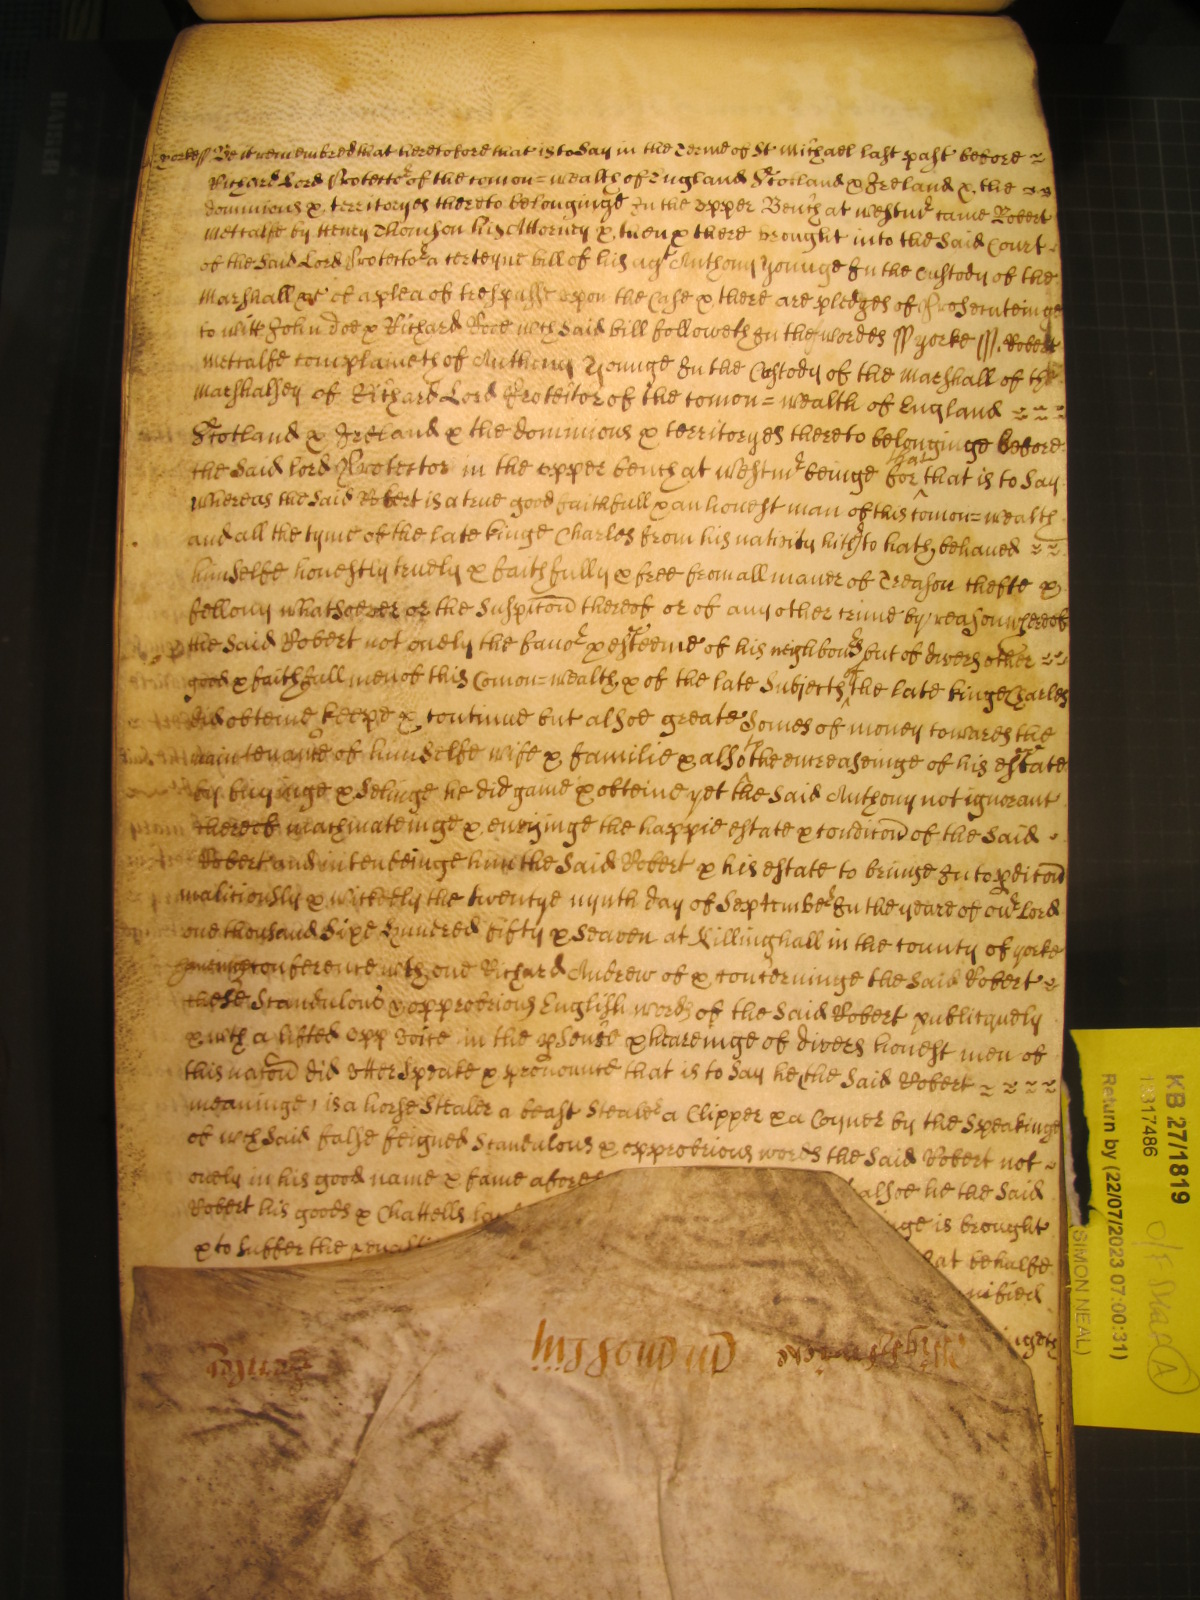 yorke ss Be it remembred that heretofore that is to Say in the Terme of St Michael last past before
Richard Lord Protector of the comon=wealth of England Scotland & Ireland & the
dominions & territoryes thereto belonginge In the upper Bench at westmr came Robert
Metcalfe by Henry Thomson his Attorney & then & there brought into the Said Court
of the Said Lord Protector a certeyne bill of his agt Anthony Younge In the Custody of the
Marshall &c of a plea of trespasse upon the Case & there are pledges of Prosecuteinge
to witt John doe & Richard Roe wch Said bill followeth In these wordes ss yorke ss. Robert
Metcalfe complaineth of Anthony Younge In the Custody of the Marshall of the
Marshalsey of Richard Lord Protector of the comon=wealth of England
Scotland & Ireland & the dominions & territoryes thereto belonginge before
the Said lord Protector in the upper bench at westmr beinge for that is to Say
whereas the Said Robert is a true good faithfull & an honest man of this comon=wealth
and all the tyme of the late kinge Charles from his nativity hitherto hath behaued
himselfe honestly truely & faithfully & free from all maner of Treason thefte &
fellony whatsoever or the Suspicon thereof or of any other crime by reason whereof
the Said Robert not onely the favor & esteeme of his neighbours but of divers other
good & faithfull men of this Comon=wealth & of the late Subjects of the late kinge Charles
did obteine keepe & continue but alsoe greate Somes of money towards the
maintenance of himselfe wife & familie & also the encreaseinge of his estate
by buyinge & Selinge he did gaine & obteine yet the Said Anthony not ignorant
thereof machinateinge & envyinge the happie estate & condicon of the Said
Robert and intendeinge him the Said Robert & his estate to bringe In to pdicon
malitiously & wickedly the twentye nynth day of September In the yeare of our Lord
one thousand Sixe hundred fifty & Seaven at Killinghall in the county of yorke
haveinge conference with one Richard Andrew of & concerninge the Said Robert
these Scandulous & opprobrious English words of the Said Robert publicquely
& with a lifted upp voice in the psence & heareinge of divers honest men of
this nacon did utter Speake & pronounce that is to Say he the Said Robert
meaninge is a horse Stealer a beast Stealer a Clipper & a Coyner by the Speakinge
of wch Said false feigned Scandulous & opprobrious words the Said Robert not
onely in his good name & fame afores alsoe he the Said
Robert his goods & Chattells nge is brought
& to Suffer the penalti hat behalfe
nified
KB 27/1819
1317486
Return by (22/07/2023 07:00:31)
(SIMON NEAL)
A